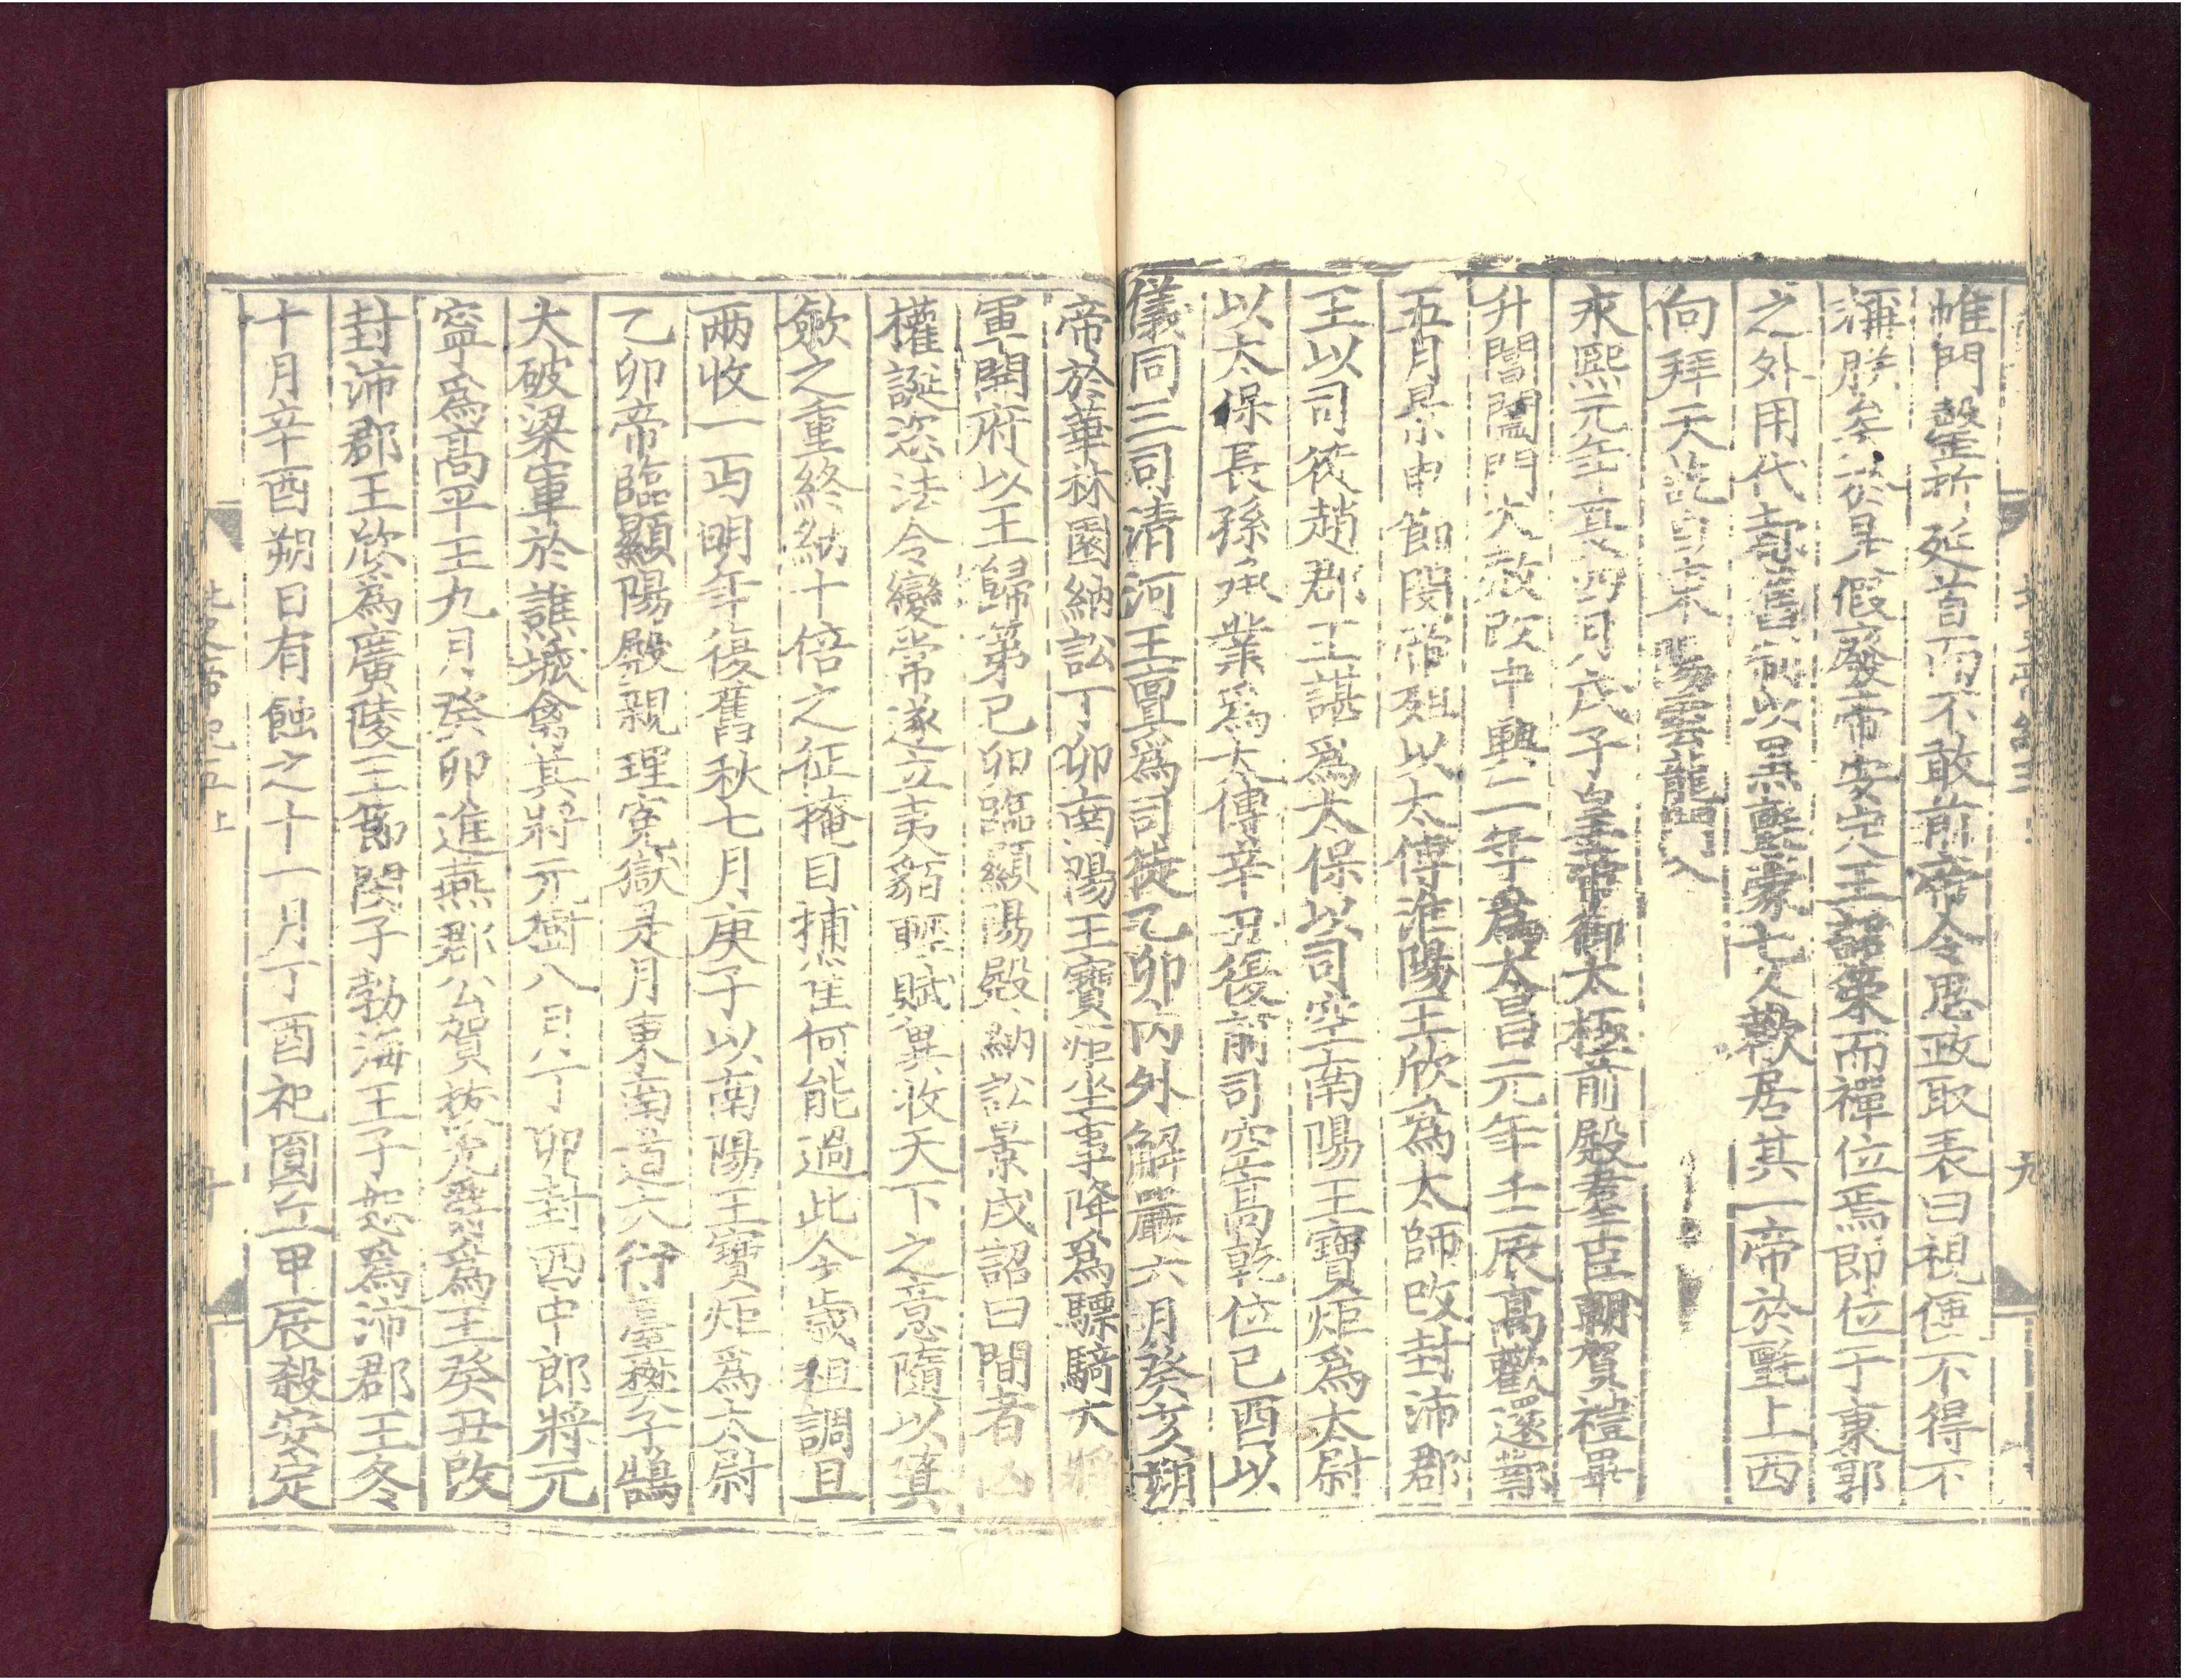 帷門罄折延首而不敢前帝令思政取表曰視便不得不
稱朕矣於是假廢帝安定王詔策而禪位焉即位于東郭
之外用代都舊制以黑氈蒙七人歡居其一帝於氈上西
向拜天訖自東陽雲龍門入
永熙元年夏四月戊子皇帝御太極前殿羣臣朝賀禮畢
升閶闔門大赦改中興二年爲太昌元年壬辰高歡還鄴
五月景申節閔帝殂以太傅淮陽王欣爲太師改封沛郡
王以司徒趙郡王諶爲太保以司空南陽王寶炬爲太尉
以太保長孫承業爲太傅辛丑復前司空高乾位己酉以
儀同三司清河王亶爲司徒乙卯內外解嚴六月癸亥朔
帝於華林園納訟丁卯南陽王寶炬坐事降爲驃騎大將
軍開府以王歸第己卯臨顯陽殿納訟景戌詔曰間者凶
權誕恣法令變常遂立夷貊輕賦冀收天下之意隨以箕
斂之重終納十倍之征掩目捕雀何能過此今歲租調且
兩收一丐明年復舊秋七月庚子以南陽王寶炬爲太尉
乙卯帝臨顯陽殿親理寃獄是月東南道大行臺樊子鵠
大破梁軍於譙城禽其將元樹八月丁卯封西中郎將元
寧爲高平王九月癸卯進燕郡公賀拔允爵爲王癸丑改
封沛郡王欣爲廣陵王節閔子勃海王子恕爲沛郡王冬
十月辛酉朔日有蝕之十一月丁酉祀圓丘甲辰殺安定
北史帝紀五上